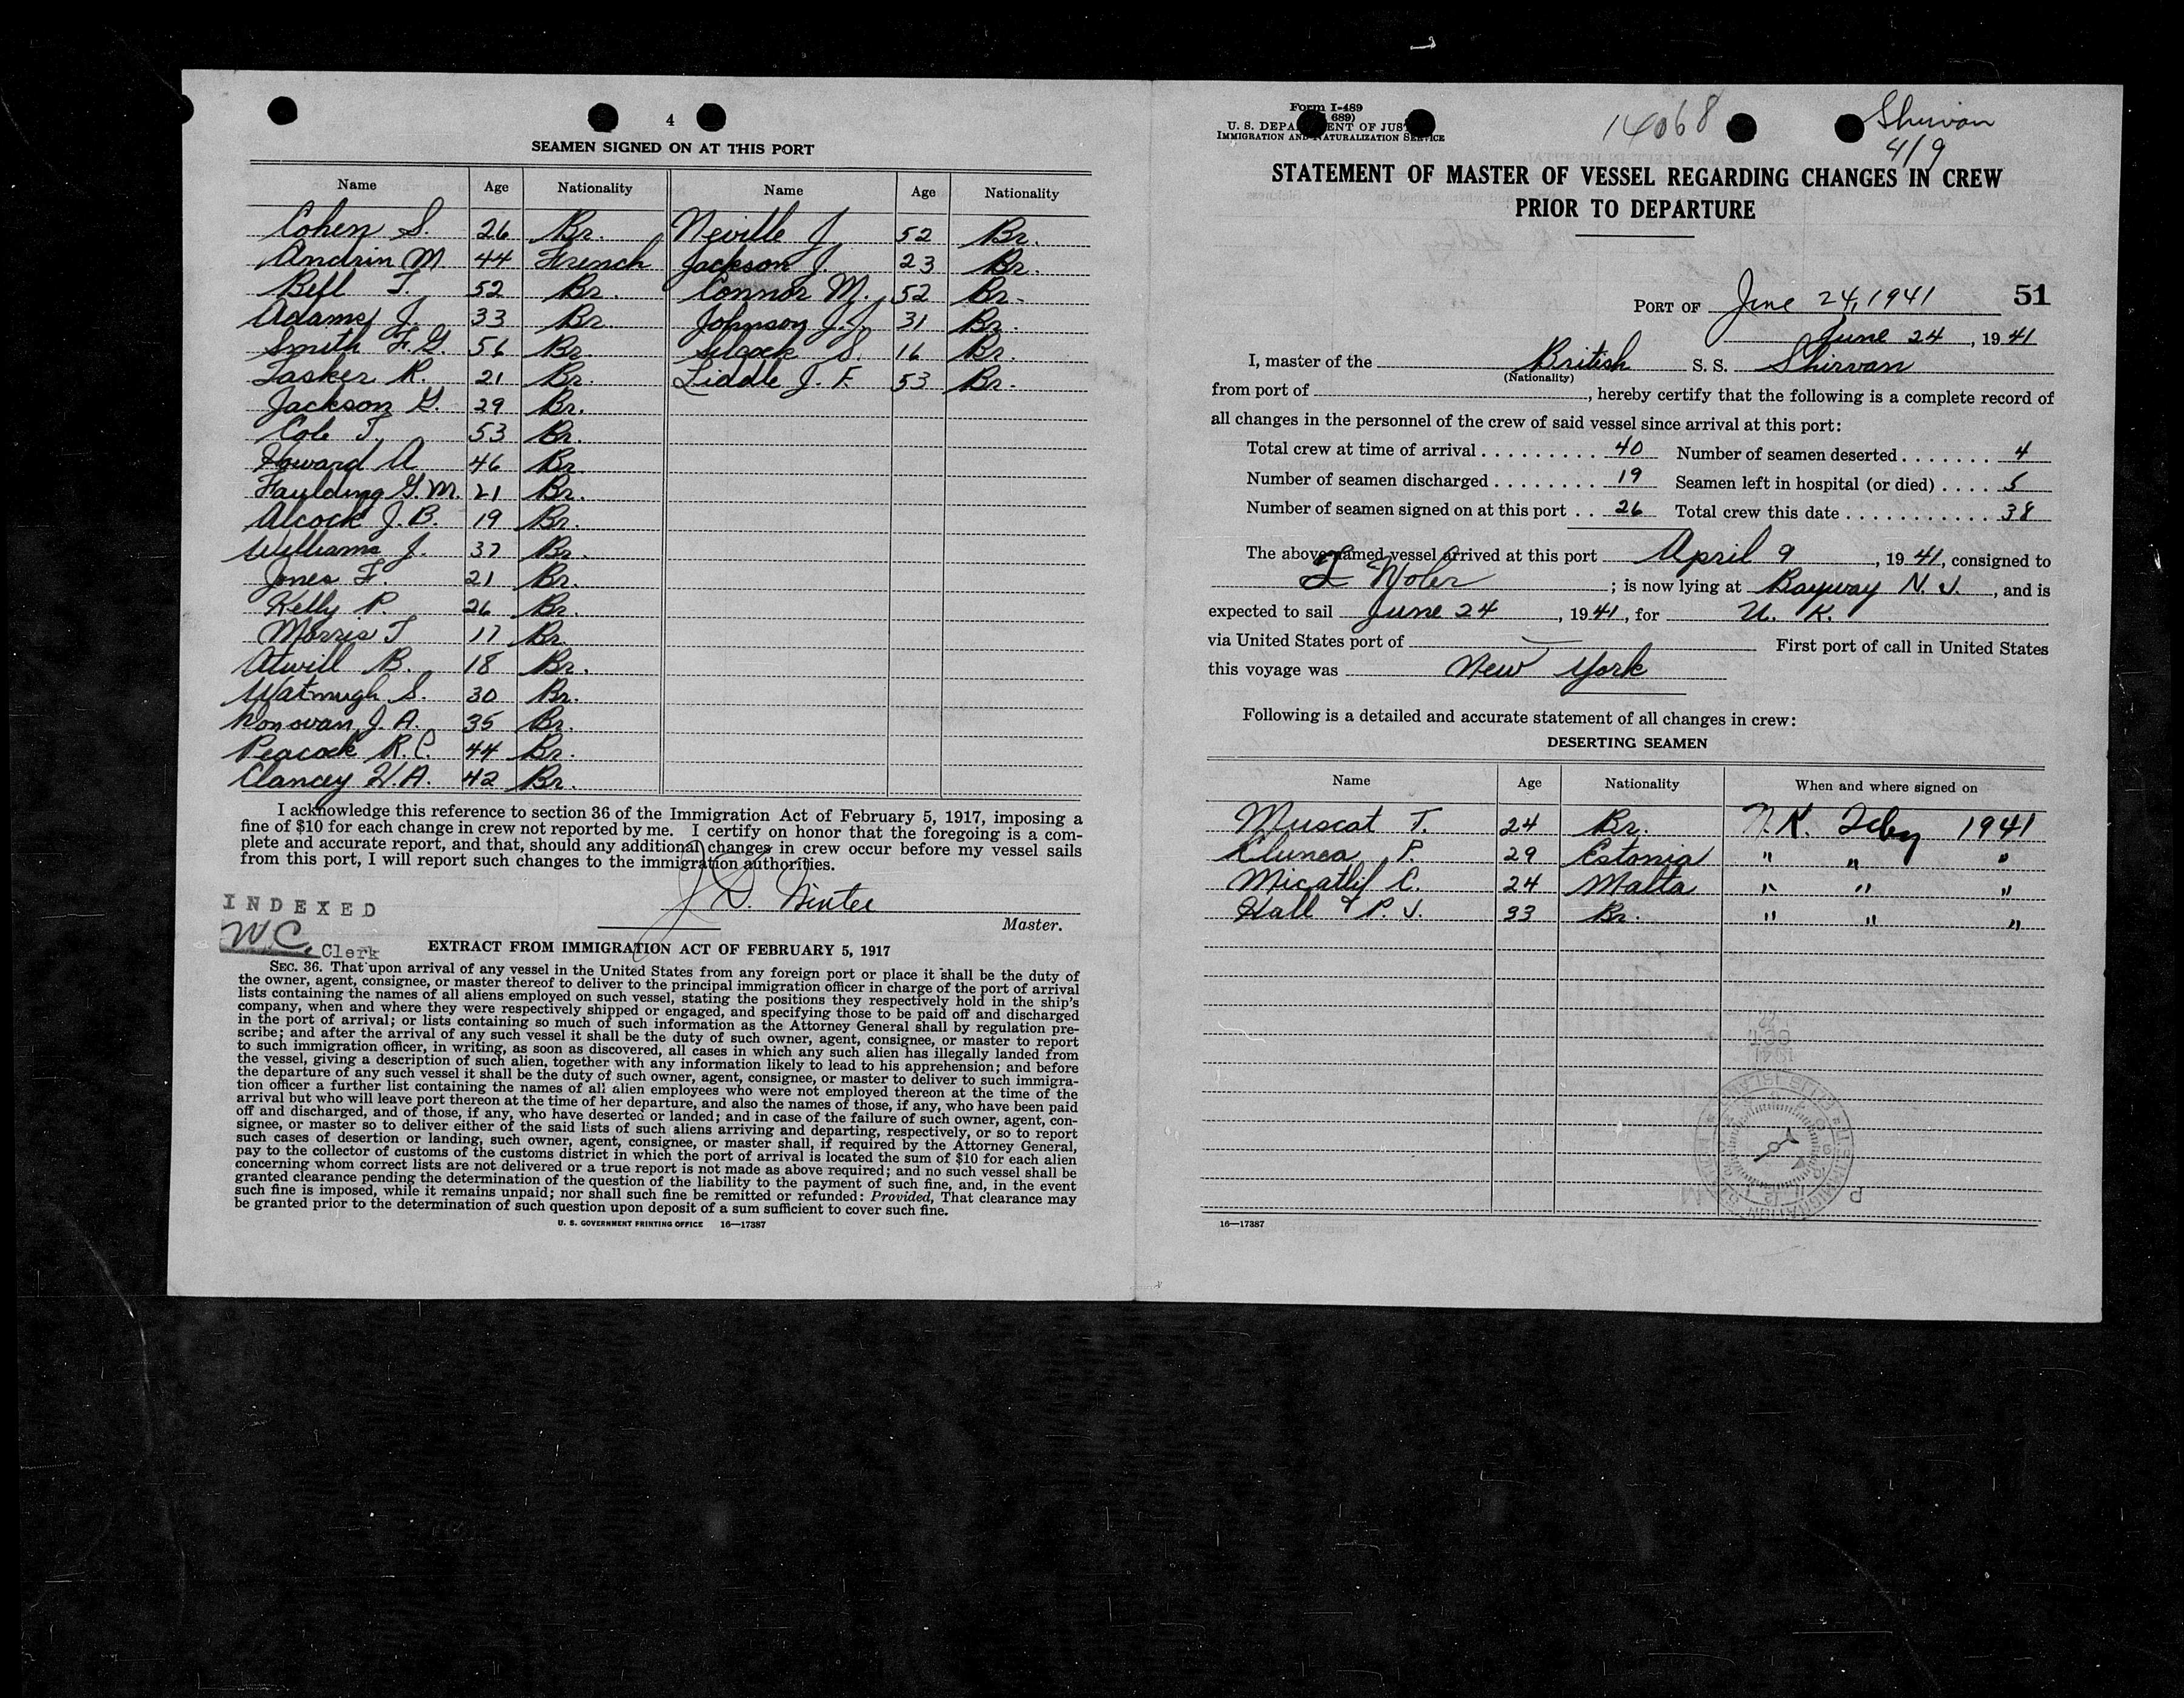 4
SEAMEN SIGNED ON AT THIS PORT
Name Age Nationality Name Age Nationality
Cohen S. 26 Br. Neville J 52 Br.
Andrin M 44 French Jackson J 23 Br.
Bell T. 52 Br. Connor M. 52 Br.
Adams J. 33 Br Johnson J.J. 31 Br.
Smith F.G. 56 Br. Silcock S. 16 Br.
Tasker R. 21 Br. Liddle J. F. 53 Br.
Jackson G. 29 Br.
Cole T. 53 Br.
Howard A 46 Br
Faulding G.M. 21 Br.
Alcock J.B. 19 Br.
Williams J. 37 Br.
Jones F. 21 Br.
Kelly P. 26 Br.
Morris T 17 Br.
Atwill B. 18 Br.
Watmugh S. 30 Br.
Donovan J.A. 35 Br.
Peacock R.C. 44 Br.
Clancey W.A. 42 Br.
I acknowledge this reference to section 36 of the Immigration Act of February 5, 1917, imposing a
fine of $10 for each change in crew not reported by me. I certify on honor that the foregoing is a com-
plete and accurate report, and that, should any additional changes in crew occur before my vessel sails
from this port, I will report such changes to the immigration authorities.
J D.
Master.
INDEXED
WC. Clerk
EXTRACT FROM IMMIGRATION ACT OF FEBRUARY 5, 1917
SEC. 36. That upon arrival of any vessel in the United States from any foreign port or place it shall be the duty of
the owner, agent, consignee, or master thereof to deliver to the principal immigration officer in charge of the port of arrival
lists containing the names of all aliens employed on such vessel, stating the positions they respectively hold in the ship's
company, when and where they were respectively shipped or engaged, and specifying those to be paid off and discharged
in the port of arrival; or lists containing so much of such information as the Attorney General shall by regulation pre-
scribe; and after the arrival of any such vessel it shall be the duty of such owner, agent, consignee, or master to report
to such immigration officer, in writing, as soon as discovered, all cases in which any such alien has illegally landed from
the vessel, giving a description of such alien, together with any information likely to lead to his apprehension; and before
the departure of any such vessel it shall be the duty of such owner, agent, consignee, or master to deliver to such immigra-
tion officer a further list containing the names of all alien employees who were not employed thereon at the time of the
arrival but who will leave port thereon at the time of her departure, and also the names of those, if any, who have been paid
off and discharged, and of those, if any, who have deserted or landed; and in case of the failure of such owner, agent, con-
signee, or master so to deliver either of the said lists of such aliens arriving and departing, respectively, or so to report
such cases of desertion or landing, such owner, agent, consignee, or master shall, if required by the Attorney General,
pay to the collector of customs of the customs district in which the port of arrival is located the sum of $10 for each alien
concerning whom correct lists are not delivered or a true report is not made as above required; and no such vessel shall be
granted clearance pending the determination of the question of the liability to the payment of such fine, and, in the event
such fine is imposed, while it remains unpaid; nor shall such fine be remitted or refunded: Provided, That clearance may
be granted prior to the determination of such question upon deposit of a sum sufficient to cover such fine.
U. S. GOVERNMENT PRINTING OFFICE 16—17387
Form I-489
689)
U. S. DEPA ENT OF JUS
IMMIGRATION AND NATURALIZATION SERVICE
14068
Shirvan
4/9
STATEMENT OF MASTER OF VESSEL REGARDING CHANGES IN CREW
PRIOR TO DEPARTURE
PORT OF June 24, 1941 51
June 24, 1941
I, master of the British S. S. Shirvan
(Nationality)
from port of , hereby certify that the following is a complete record of
all changes in the personnel of the crew of said vessel since arrival at this port:
Total crew at time of arrival 40 Number of seamen deserted 4
Number of seamen discharged 19 Seamen left in hospital (or died) 5
Number of seamen signed on at this port 26 Total crew this date 38
The above-named vessel arrived at this port April 9, 1941, consigned to
; is now lying at Bayway N. J., and is
expected to sail June 24, 1941, for U. K.
via United States port of First port of call in United States
this voyage was New York
Following is a detailed and accurate statement of all changes in crew:
DESERTING SEAMEN
Name Age Nationality When and where signed on
Muscat T. 24 Br. 1941
P. 29 Estonia " " "
Micallif C. 24 Malta " " "
Hall P. J. 33 Br. " " "
16—17387